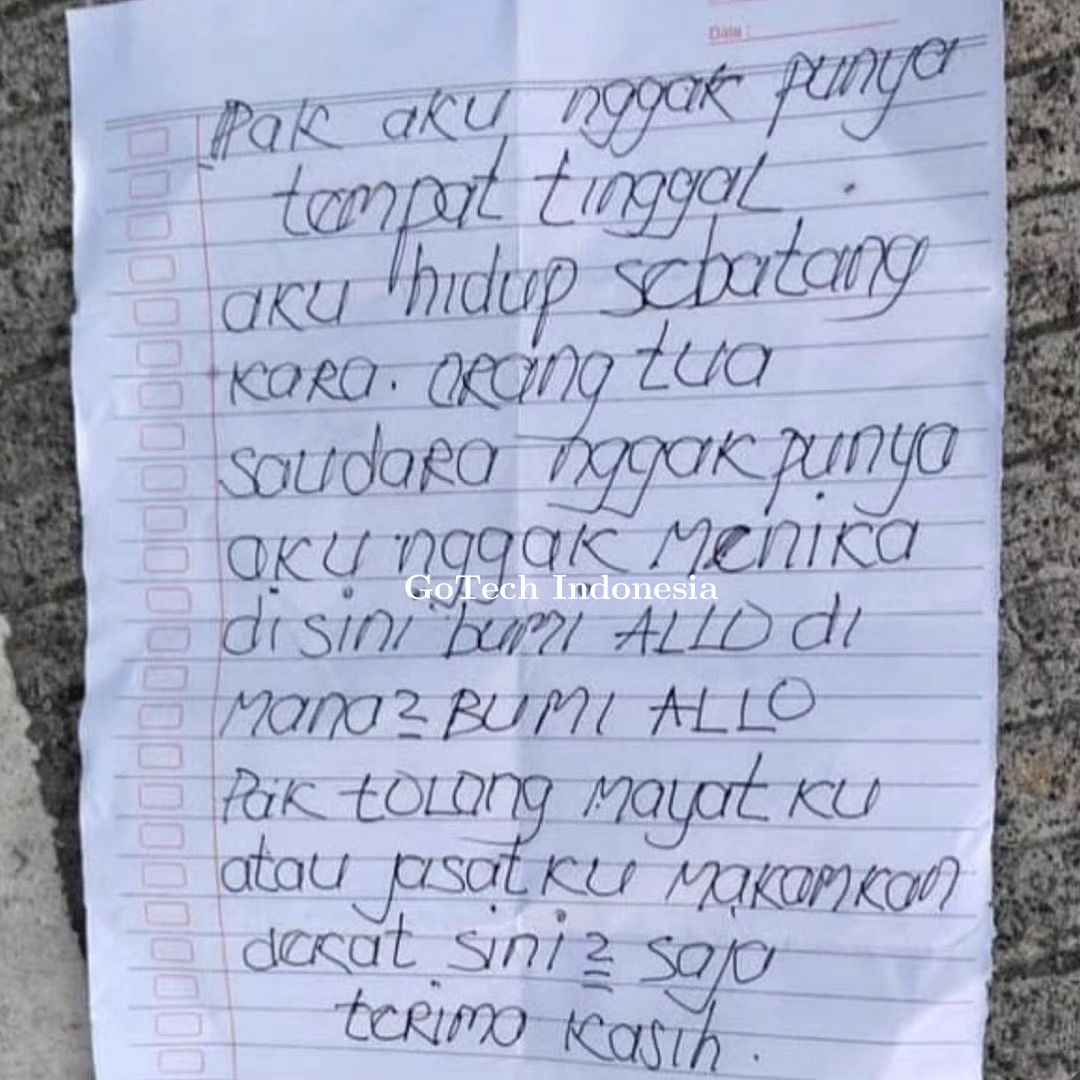 Date :
Pak aku nggak punya
tempat tinggal .
aku hidup sebatang
kara. orang tua
saudara nggak punya
aku nggak menika
GoTech Indonesia
disini bumi ALLO di
mana2 BUMI ALLO
Pak tolong mayat ku
atau jasat ku makamkan
dekat sini2 saja
terima kasih .